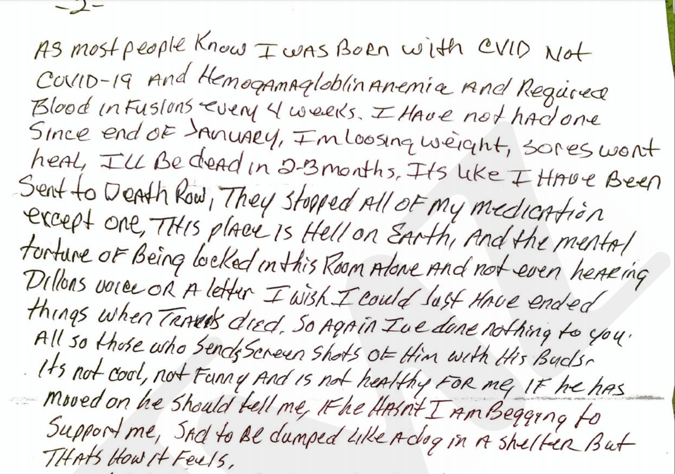 -2-
As most people Know I was Born with CVID Not
COVID-19 And HemogAmAgloblinAnemia And Required
Blood inFusions every 4 weeks. I HAve not had one
Since end OF JANUARY, I'm loosing weight, sores wont
heal, I'll Be dead in 2-3 months, Its like I HAve Been
Sent to Death Row, They stopped All OF my medication
except one, This place Is Hell on Earth, And the mental
torture OF Being locked in this Room Alone And not even heAring
Dillons voice OR A letter I wish I could Just HAve ended
things when Travis died. So Again I've done nothing to you.
All so those who Sends Screen Shots OF Him with His Buds-
Its not cool, not Funny And is not heAlthy FOR me, IF he has
moved on he should tell me, IF he HAsnt I Am Begging to
Support me, SAd to Be dumped Like A dog in A shelter But
THAts How it Feels,